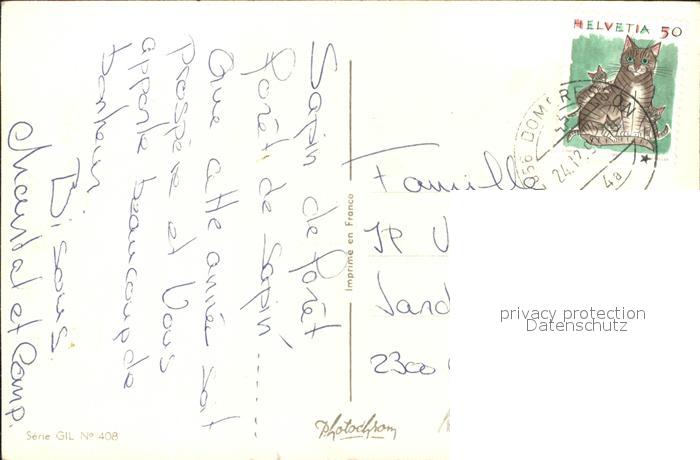 Sapin de forêt
forêt de Sapin ......
Que cette année soit
prospère et Vous
apporte beaucoup de
bonheur
Bisous
Chantal et Comp.
Imprimé en France
HELVETIA 50
DOMBR
24.12.9
4a
Famille
JP V
Jard
2300
privacy protection
Datenschutz
Série GIL Nº 408
Photochrom